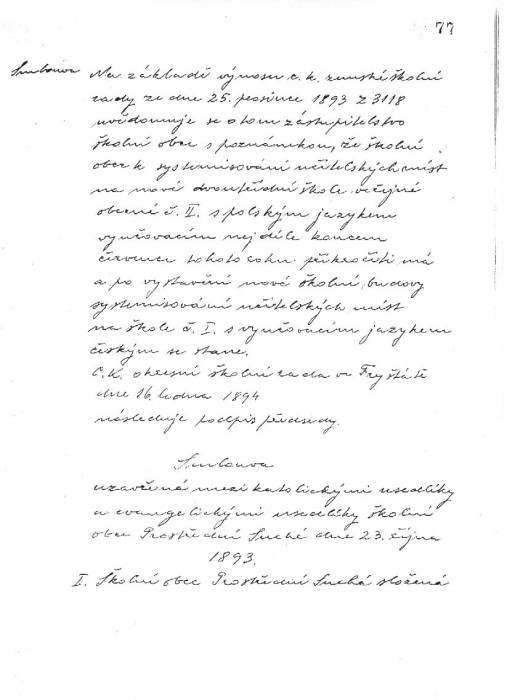 77
Smlouva
Na základě výnosu c. k. zemské školní
rady ze dne 25. prosince 1893 z 3118
uvědomuje se o tom zástupitelstvo
školní obce s poznámkou, že školní
obec k systemisování učitelských míst
na nové dvoutřídní škole veřejné
obecné č. II. s polským jazykem
vyučovacím nejdéle koncem
července tohoto roku přikročiti má
a po vystavění nové školní budovy
systemisování učitelských míst
na škole č. I. s vyučovacím jazykem
českým se stane.
C. K. okresní školní rada ve Fryštátě
dne 16. ledna 1894
následuje podpis předsedy.
Smlouva
uzavřená mezi katolickými usedlíky
a evangelickými usedlíky školní
obce Prostřední Suché dne 23. října
1893.
I. Školní obec Prostřední Suchá složená